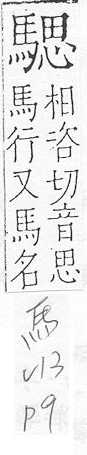 騦
相咨切音思
馬行又馬名
馬
V13
P9